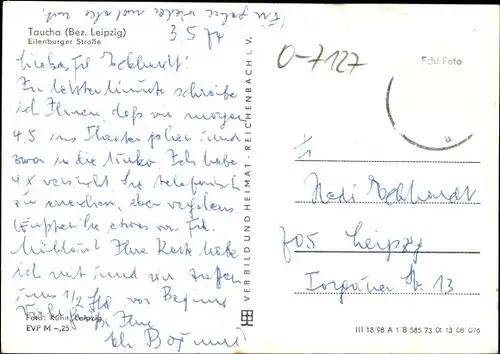 Taucha (Bez. Leipzig)
Eilenburger Straße
3 5 74
Liebes Frl. Eckhardt!
In letzter Minute schreibe
ich Ihnen, daß wir morgen
4.5. ins Theater gehen und
zwar in die Ich habe
4x versucht Sie telefonisch
zu erreichen, aber vergebens.
etwas von Frl.
Ihre Karte habe
ich mit und wir treffen
uns 1/2 Std vor Beginn
Ihre
Foto: Kühn, Leipzig
EVP M –,25
VEB BILD UND HEIMAT · REICHENBACH I. V.
O-7127
Echt Foto
Frl
Hedi Eckhardt
705 Leipzig
Torgauer Str. 13
III 18/98 A 1/B 585 73 01 13 08 076